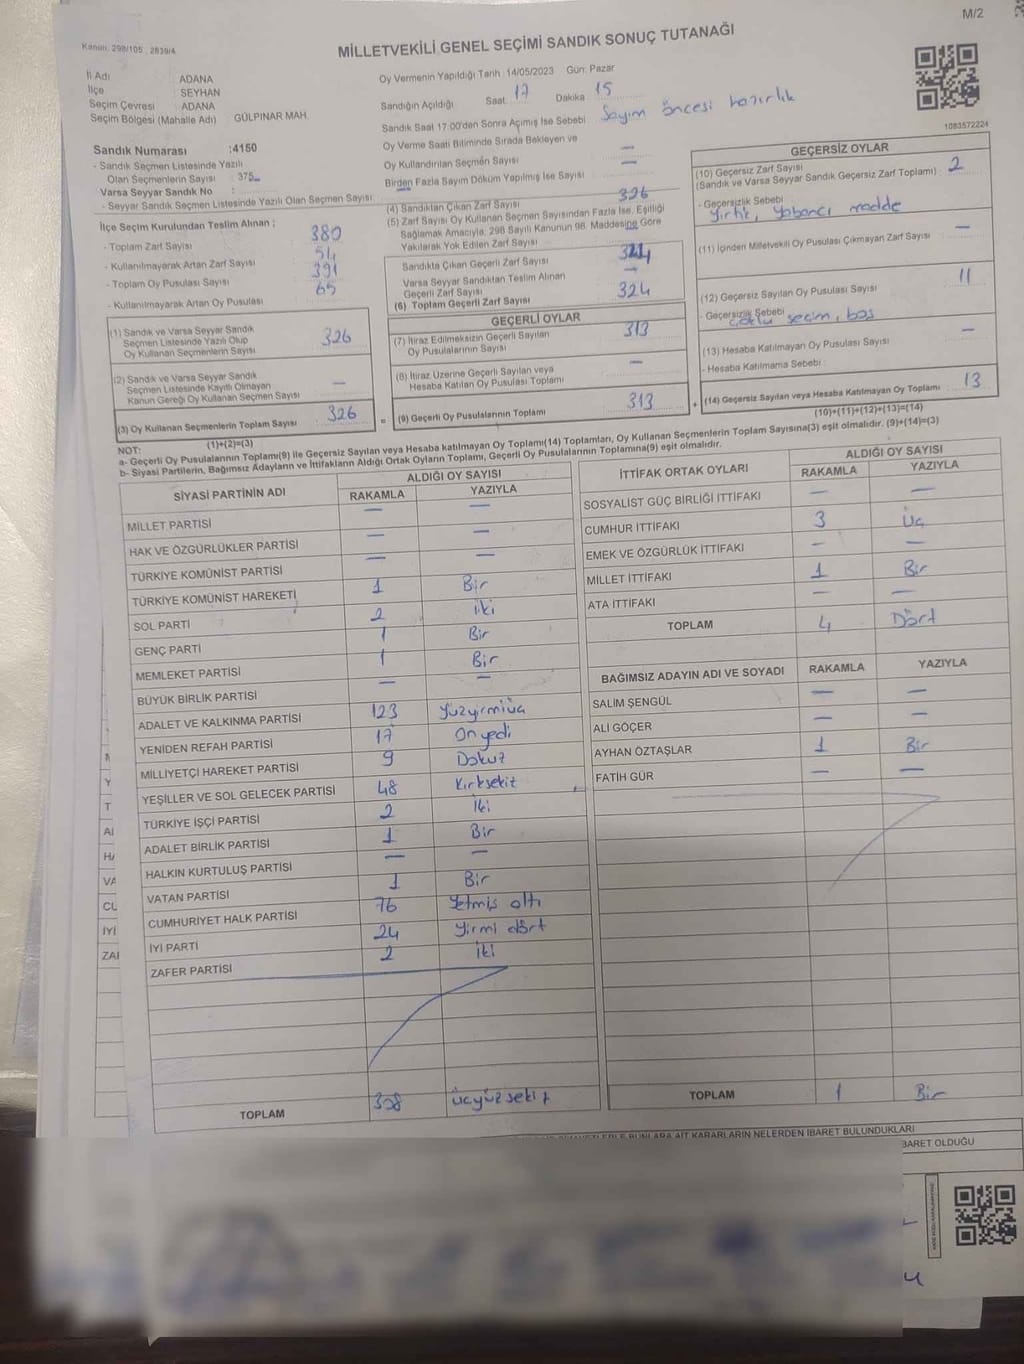 M/2
Kanun: 298/105, 2839/4
MİLLETVEKİLİ GENEL SEÇİMİ SANDIK SONUÇ TUTANAĞI
İl Adı ADANA
İlçe SEYHAN
Seçim Çevresi : ADANA
Seçim Bölgesi (Mahalle Adı) GÜLPINAR MAH.
Oy Vermenin Yapıldığı Tarih :14/05/2023 Gün: Pazar
Sandığın Açıldığı Saat 17 Dakika 15
Sandık Saat 17:00'den Sonra Açılmış İse Sebebi Sayım öncesi hazırlık
Oy Verme Saati Bitiminde Sırada Bekleyen ve
Oy Kullandırılan Seçmen Sayısı —
Birden Fazla Sayım Döküm Yapılmış İse Sayısı —
1083572224
Sandık Numarası :4150
- Sandık Seçmen Listesinde Yazılı
Olan Seçmenlerin Sayısı 375
Varsa Seyyar Sandık No :
- Seyyar Sandık Seçmen Listesinde Yazılı Olan Seçmen Sayısı
İlçe Seçim Kurulundan Teslim Alınan ;
- Toplam Zarf Sayısı 380
- Kullanılmayarak Artan Zarf Sayısı 54
- Toplam Oy Pusulası Sayısı 391
- Kullanılmayarak Artan Oy Pusulası 65
(1) Sandık ve Varsa Seyyar Sandık
Seçmen Listesinde Yazılı Olup
Oy Kullanan Seçmenlerin Sayısı 326
(2) Sandık ve Varsa Seyyar Sandık
Seçmen Listesinde Kayıtlı Olmayan
Kanun Gereği Oy Kullanan Seçmen Sayısı —
(3) Oy Kullanan Seçmenlerin Toplam Sayısı 326
(1)+(2)=(3)
(4) Sandıktan Çıkan Zarf Sayısı 326
(5) Zarf Sayısı Oy Kullanan Seçmen Sayısından Fazla İse, Eşitliği
Sağlamak Amacıyla, 298 Sayılı Kanunun 98. Maddesine Göre
Yakılarak Yok Edilen Zarf Sayısı —
Sandıkta Çıkan Geçerli Zarf Sayısı 324
Varsa Seyyar Sandıktan Teslim Alınan
Geçerli Zarf Sayısı —
(6) Toplam Geçerli Zarf Sayısı 324
GEÇERLİ OYLAR
(7) İtiraz Edilmeksizin Geçerli Sayılan
Oy Pusulalarının Sayısı 313
(8) İtiraz Üzerine Geçerli Sayılan veya
Hesaba Katılan Oy Pusulası Toplamı —
= (9) Geçerli Oy Pusulalarının Toplamı 313
GEÇERSİZ OYLAR
(10) Geçersiz Zarf Sayısı 2
(Sandık ve Varsa Seyyar Sandık Geçersiz Zarf Toplamı) :
- Geçersizlik Sebebi
Yırtık, Yabancı madde
(11) İçinden Milletvekili Oy Pusulası Çıkmayan Zarf Sayısı —
(12) Geçersiz Sayılan Oy Pusulası Sayısı 11
- Geçersizlik Sebebi
Çoklu seçim, boş
(13) Hesaba Katılmayan Oy Pusulası Sayısı —
- Hesaba Katılmama Sebebi :
+ (14) Geçersiz Sayılan veya Hesaba Katılmayan Oy Toplamı 13
(10)+(11)+(12)+(13)=(14)
NOT:
a- Geçerli Oy Pusulalarının Toplamı(9) ile Geçersiz Sayılan veya Hesaba katılmayan Oy Toplamı(14) Toplamları, Oy Kullanan Seçmenlerin Toplam Sayısına(3) eşit olmalıdır. (9)+(14)=(3)
b- Siyasi Partilerin, Bağımsız Adayların ve İttifakların Aldığı Ortak Oyların Toplamı, Geçerli Oy Pusulalarının Toplamına(9) eşit olmalıdır.
SİYASİ PARTİNİN ADI ALDIĞI OY SAYISI
RAKAMLA YAZIYLA
MİLLET PARTİSİ — —
HAK VE ÖZGÜRLÜKLER PARTİSİ — —
TÜRKİYE KOMÜNİST PARTİSİ — —
TÜRKİYE KOMÜNİST HAREKETİ 1 Bir
SOL PARTİ 2 iki
GENÇ PARTİ 1 Bir
MEMLEKET PARTİSİ 1 Bir
BÜYÜK BİRLİK PARTİSİ — —
ADALET VE KALKINMA PARTİSİ 123 Yüzyirmiüç
YENİDEN REFAH PARTİSİ 17 Onyedi
MİLLİYETÇİ HAREKET PARTİSİ 9 Dokuz
YEŞİLLER VE SOL GELECEK PARTİSİ 48 Kırksekiz
TÜRKİYE İŞÇİ PARTİSİ 2 İki
ADALET BİRLİK PARTİSİ 1 Bir
HALKIN KURTULUŞ PARTİSİ — —
VATAN PARTİSİ 1 Bir
CUMHURİYET HALK PARTİSİ 76 Yetmiş altı
İYİ PARTİ 24 Yirmi dört
ZAFER PARTİSİ 2 İki
TOPLAM 308 üçyüzsekiz
İTTİFAK ORTAK OYLARI ALDIĞI OY SAYISI
RAKAMLA YAZIYLA
SOSYALİST GÜÇ BİRLİĞİ İTTİFAKI — —
CUMHUR İTTİFAKI 3 Üç
EMEK VE ÖZGÜRLÜK İTTİFAKI — —
MİLLET İTTİFAKI 1 Bir
ATA İTTİFAKI — —
TOPLAM 4 Dört
BAĞIMSIZ ADAYIN ADI VE SOYADI RAKAMLA YAZIYLA
SALİM ŞENGÜL — —
ALİ GÖÇER — —
AYHAN ÖZTAŞLAR 1 Bir
FATİH GÜR — —
TOPLAM 1 Bir
KARARLARIN NELERDEN İBARET BULUNDUKLARI
BARET OLDUĞU